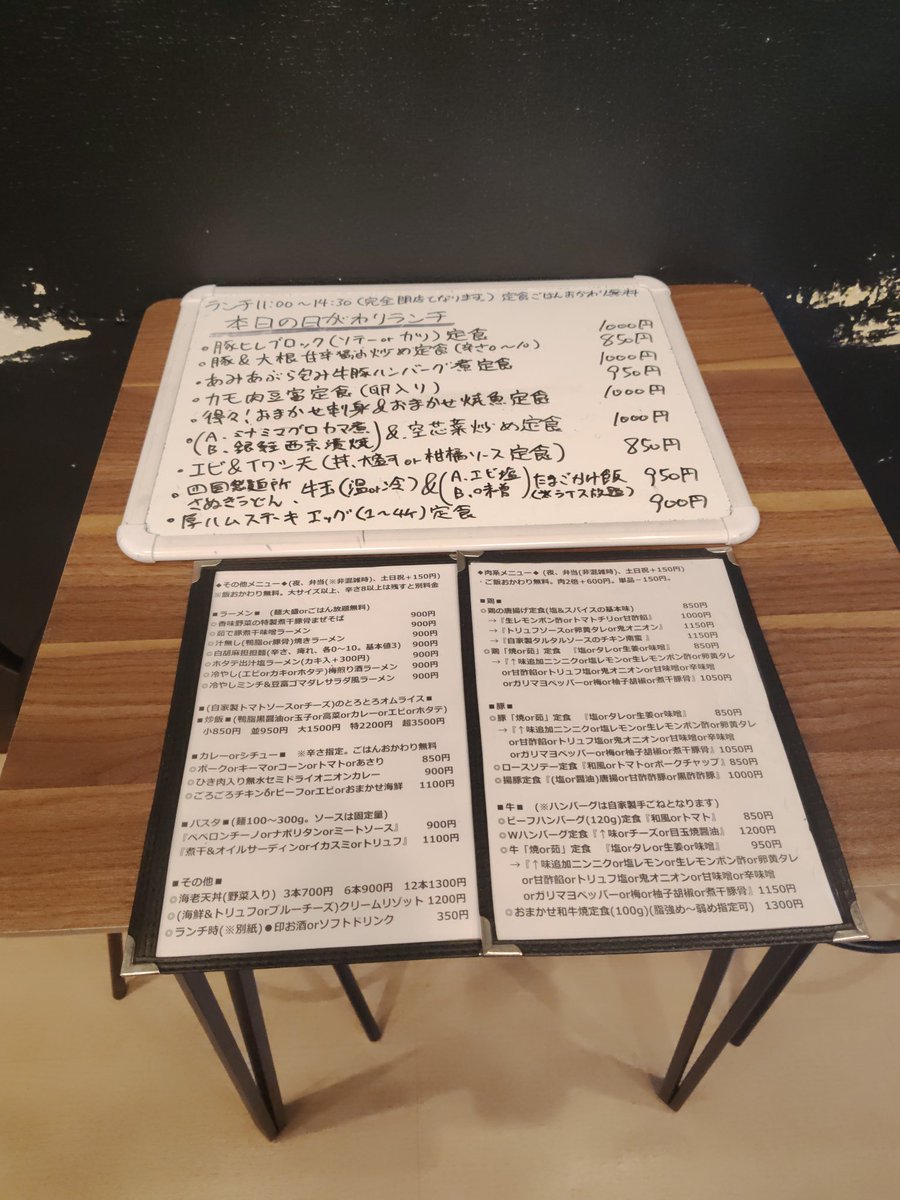 ランチ11:00～14:30(完全閉店となります) 定食ごはんおかわり無料
本日の日がわりランチ
・豚ヒレブロック(ソテーorカツ)定食 1000円
・豚&大根甘辛醤油炒め定食(辛さ0～10) 850円
・あみあぶら包み牛豚ハンバーグ煮定食 1000円
・カモ肉豆富定食(卵入り) 950円
・得々!おまかせ刺身&おまかせ焼魚定食 1000円
・(A.ミナミマグロカマ煮 B.銀鮭西京漬焼)&空芯菜炒め定食 1000円
・エビ&イワシ天(丼、大盛すor柑橘ソース定食) 850円
・四国製麺所さぬきうどん、牛玉(温or冷)&(A.エビ塩 B.味噌)たまご付け飯(※ライス放題) 950円
・厚ハムステーキエッグ(1～4ヶ)定食 900円
◆その他メニュー◆(夜、弁当(※非混雑時)、土日祝+150円)
※飯おかわり無料。大サイズ以上、辛さ8以上は残すと別料金
■ラーメン■ (麺大盛orごはん放題無料)
◎香味野菜の特製煮干豚骨まぜそば 900円
◎茹で豚煮干味噌ラーメン 900円
◎汁無し(鴨脂or豚骨)焼きラーメン 900円
◎白胡麻担担麺(辛さ、痺れ、各0～10。基本値3) 900円
◎ホタテ出汁塩ラーメン(カキ入+300円) 900円
◎冷やし(エビorカキorホタテ)梅煎り酒ラーメン 900円
◎冷やしミンチ&豆富ゴマダレサラダ風ラーメン 900円
■(自家製トマトソースorチーズ)のとろとろオムライス■
■炒飯■(鴨脂黒醤油or玉子or高菜orカレーorエビorホタテ)
小850円 並950円 大1500円 特2200円 超3500円
■カレーorシチュー■ ※辛さ指定。ごはんおかわり無料
◎ポークorキーマorコーンorトマトorあさり 850円
◎ひき肉入り無水セミドライオニオンカレー 900円
◎ごろごろチキンorビーフorエビorおまかせ海鮮 1100円
■パスタ■(麺100～300g。ソースは固定量)
『ペペロンチーノorナポリタンorミートソース』 900円
『煮干&オイルサーディンorイカスミorトリュフ』 1100円
■その他■
◎海老天丼(野菜入り) 3本700円 6本900円 12本1300円
◎(海鮮&トリュフorブルーチーズ)クリームリゾット 1200円
◎ランチ時(※別紙)●印お酒orソフトドリンク 350円
◆肉系メニュー◆(夜、弁当(非混雑時)、土日祝+150円)
・ご飯おかわり無料。肉2倍+600円。単品-150円。
■鶏■
◎鶏の唐揚げ定食(塩&スパイスの基本味) 850円
→『生レモンポン酢orトマトチリor甘酢餡』 1000円
→『トリュフソースor卵黄タレor鬼オニオン』 1150円
→『自家製タルタルソースのチキン南蛮 』 1150円
◎鶏「焼or茹」定食 『塩orタレor生姜or味噌』 850円
→『↑味追加ニンニクor塩レモンor生レモンポン酢or卵黄タレ
or甘酢餡orトリュフ塩or鬼オニオンor甘味噌or辛味噌
orガリマヨペッパーor梅or柚子胡椒or煮干豚骨』 1050円
■豚■
◎豚「焼or茹」定食 『塩orタレor生姜or味噌』 850円
→『↑味追加ニンニクor塩レモンor生レモンポン酢or卵黄タレ
or甘酢餡orトリュフ塩or鬼オニオンor甘味噌or辛味噌
orガリマヨペッパーor梅or柚子胡椒or煮干豚骨』 1050円
◎ロースソテー定食『和風orトマトorポークチャップ』 850円
◎揚豚定食『(塩or醤油)唐揚or甘酢酢豚or黒酢酢豚』 1000円
■牛■ (※ハンバーグは自家製手ごねとなります)
◎ビーフハンバーグ(120g)定食『和風orトマト』 850円
◎Wハンバーグ定食『↑味orチーズor目玉焼醤油』 1200円
◎牛「焼or茹」定食 『塩orタレor生姜or味噌』 950円
→『↑味追加ニンニクor塩レモンor生レモンポン酢or卵黄タレ
or甘酢餡orトリュフ塩or鬼オニオンor甘味噌or辛味噌
orガリマヨペッパーor梅or柚子胡椒or煮干豚骨』 1150円
◎おまかせ和牛焼定食(100g)(脂強め～弱め指定可) 1300円